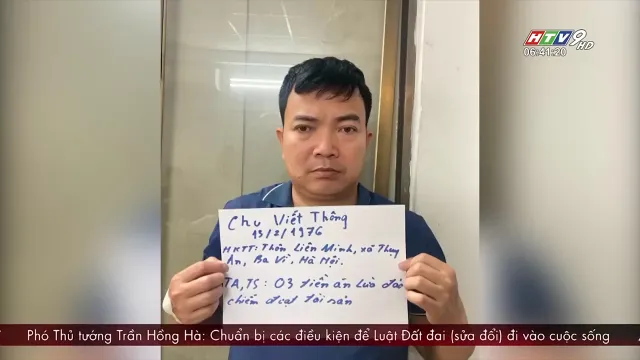 HTV9 HD
06:41:20
Chu Viết Thông
13/2/1976
HKTT: Thôn Liên Minh, xã Thụy
An, Ba Vì, Hà Nội.
TA, TS: 03 tiền án Lừa đảo
chiếm đoạt tài sản
Phó Thủ tướng Trần Hồng Hà: Chuẩn bị các điều kiện để Luật Đất đai (sửa đổi) đi vào cuộc sống